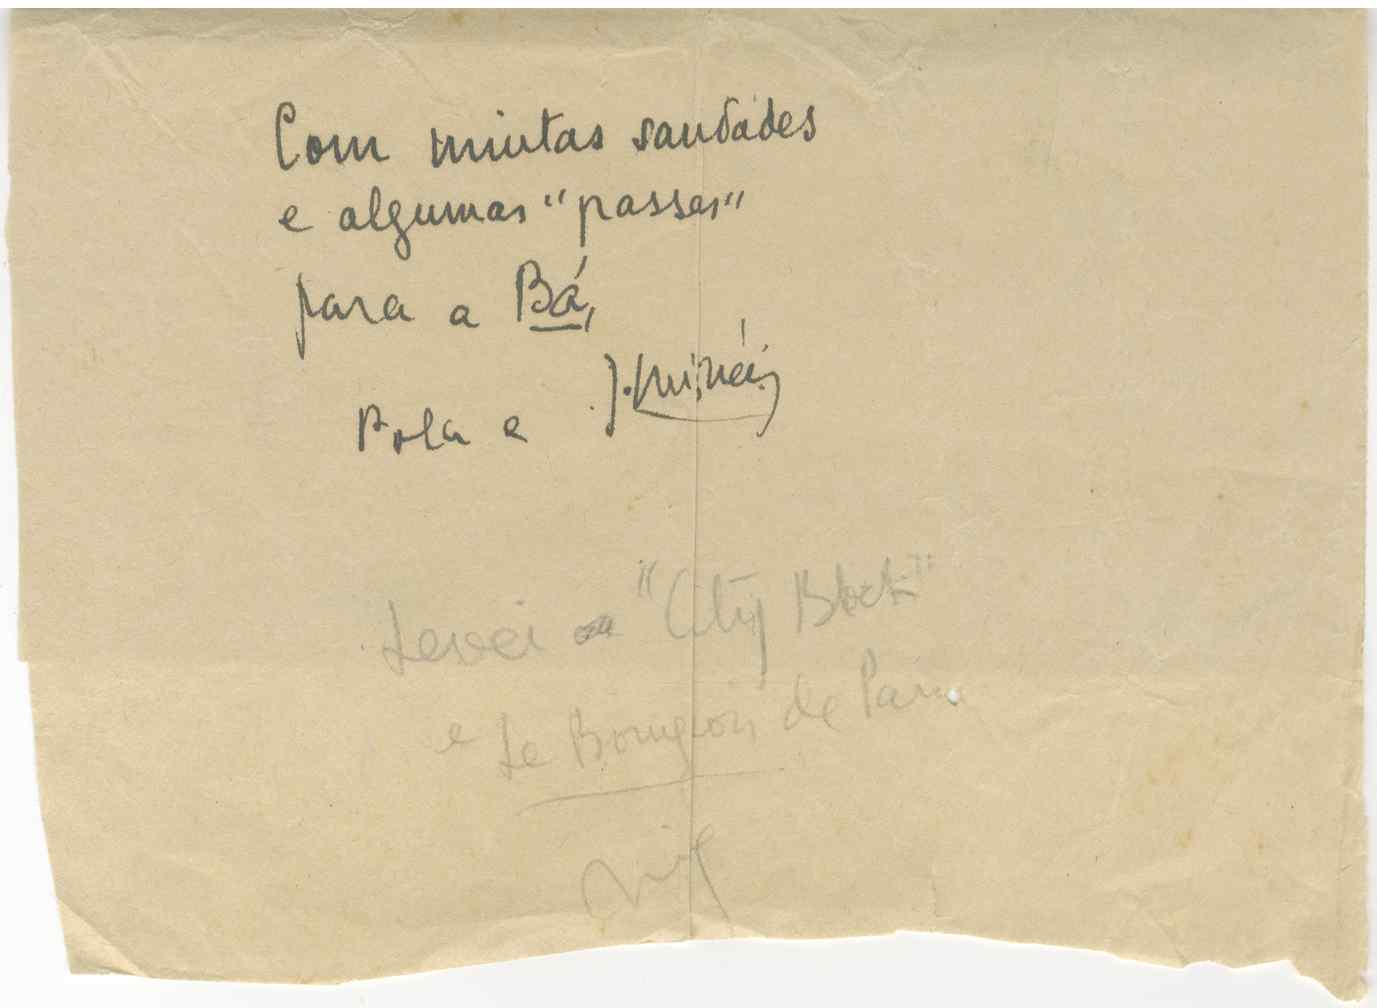 Com muitas saudades
e algumas "passas"
para a Bá,
Pola e
Levei "City Block"
e Le Bourgeois de Paris